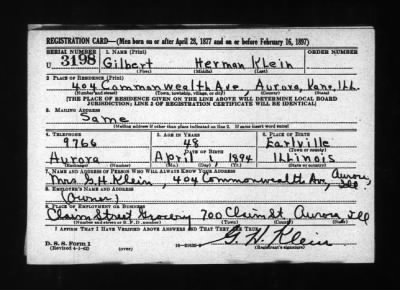 REGISTRATION CARD—(Men born on or after April 28, 1877 and on or before February 16, 1897)
SERIAL NUMBER 1. NAME (Print) ORDER NUMBER
U 3198 Gilbert Herman Klein
(First) (Middle) (Last)
2. PLACE OF RESIDENCE (Print)
404 Commonwealth Ave., Aurora, Kane, Ill.
(Number and street) (Town, township, village, or city) (County) (State)
[THE PLACE OF RESIDENCE GIVEN ON THE LINE ABOVE WILL DETERMINE LOCAL BOARD
JURISDICTION; LINE 2 OF REGISTRATION CERTIFICATE WILL BE IDENTICAL]
3. MAILING ADDRESS
Same
[Mailing address if other than place indicated on line 2. If same insert word same]
4. TELEPHONE 5. AGE IN YEARS 6. PLACE OF BIRTH
9766 48 Earlville
DATE OF BIRTH (Town or county)
Aurora April 1, 1894 Illinois
(Exchange) (Number) (Mo.) (Day) (Yr.) (State or country)
7. NAME AND ADDRESS OF PERSON WHO WILL ALWAYS KNOW YOUR ADDRESS
Mrs. G. H. Klein, 404 Commonwealth Ave, Aurora, Ill
8. EMPLOYER'S NAME AND ADDRESS
(Owner)
9. PLACE OF EMPLOYMENT OR BUSINESS
Claim Street Grocery 700 Claim St. Aurora Ill
(Number and street or R. F. D. number) (Town) (County) (State)
I AFFIRM THAT I HAVE VERIFIED ABOVE ANSWERS AND THAT THEY ARE TRUE.
G. H. Klein
D. S. S. Form 1
(Revised 4-1-42) (over) (Registrant's signature)